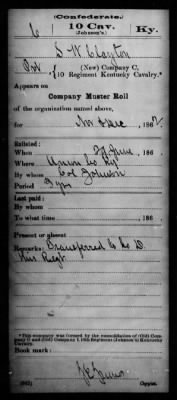 (Confederate.)
C 10 Cav. Ky.
(Johnson's.)
S W Clayton
Pvt (New) Company C,
10 Regiment Kentucky Cavalry.*
Appears on
Company Muster Roll
of the organization named above,
for Nov & Dec, 1862.
Enlisted:
When 22 June, 186
Where Union Co Ky
By whom Col Johnson
Period 3 yrs
Last paid:
By whom
To what time , 186 .
Present or absent
Remarks: Transferred to Co D.
this Regt.
*This company was formed by the consolidation of (Old) Company
Cavalry.
Book mark:
(642) Copyist.